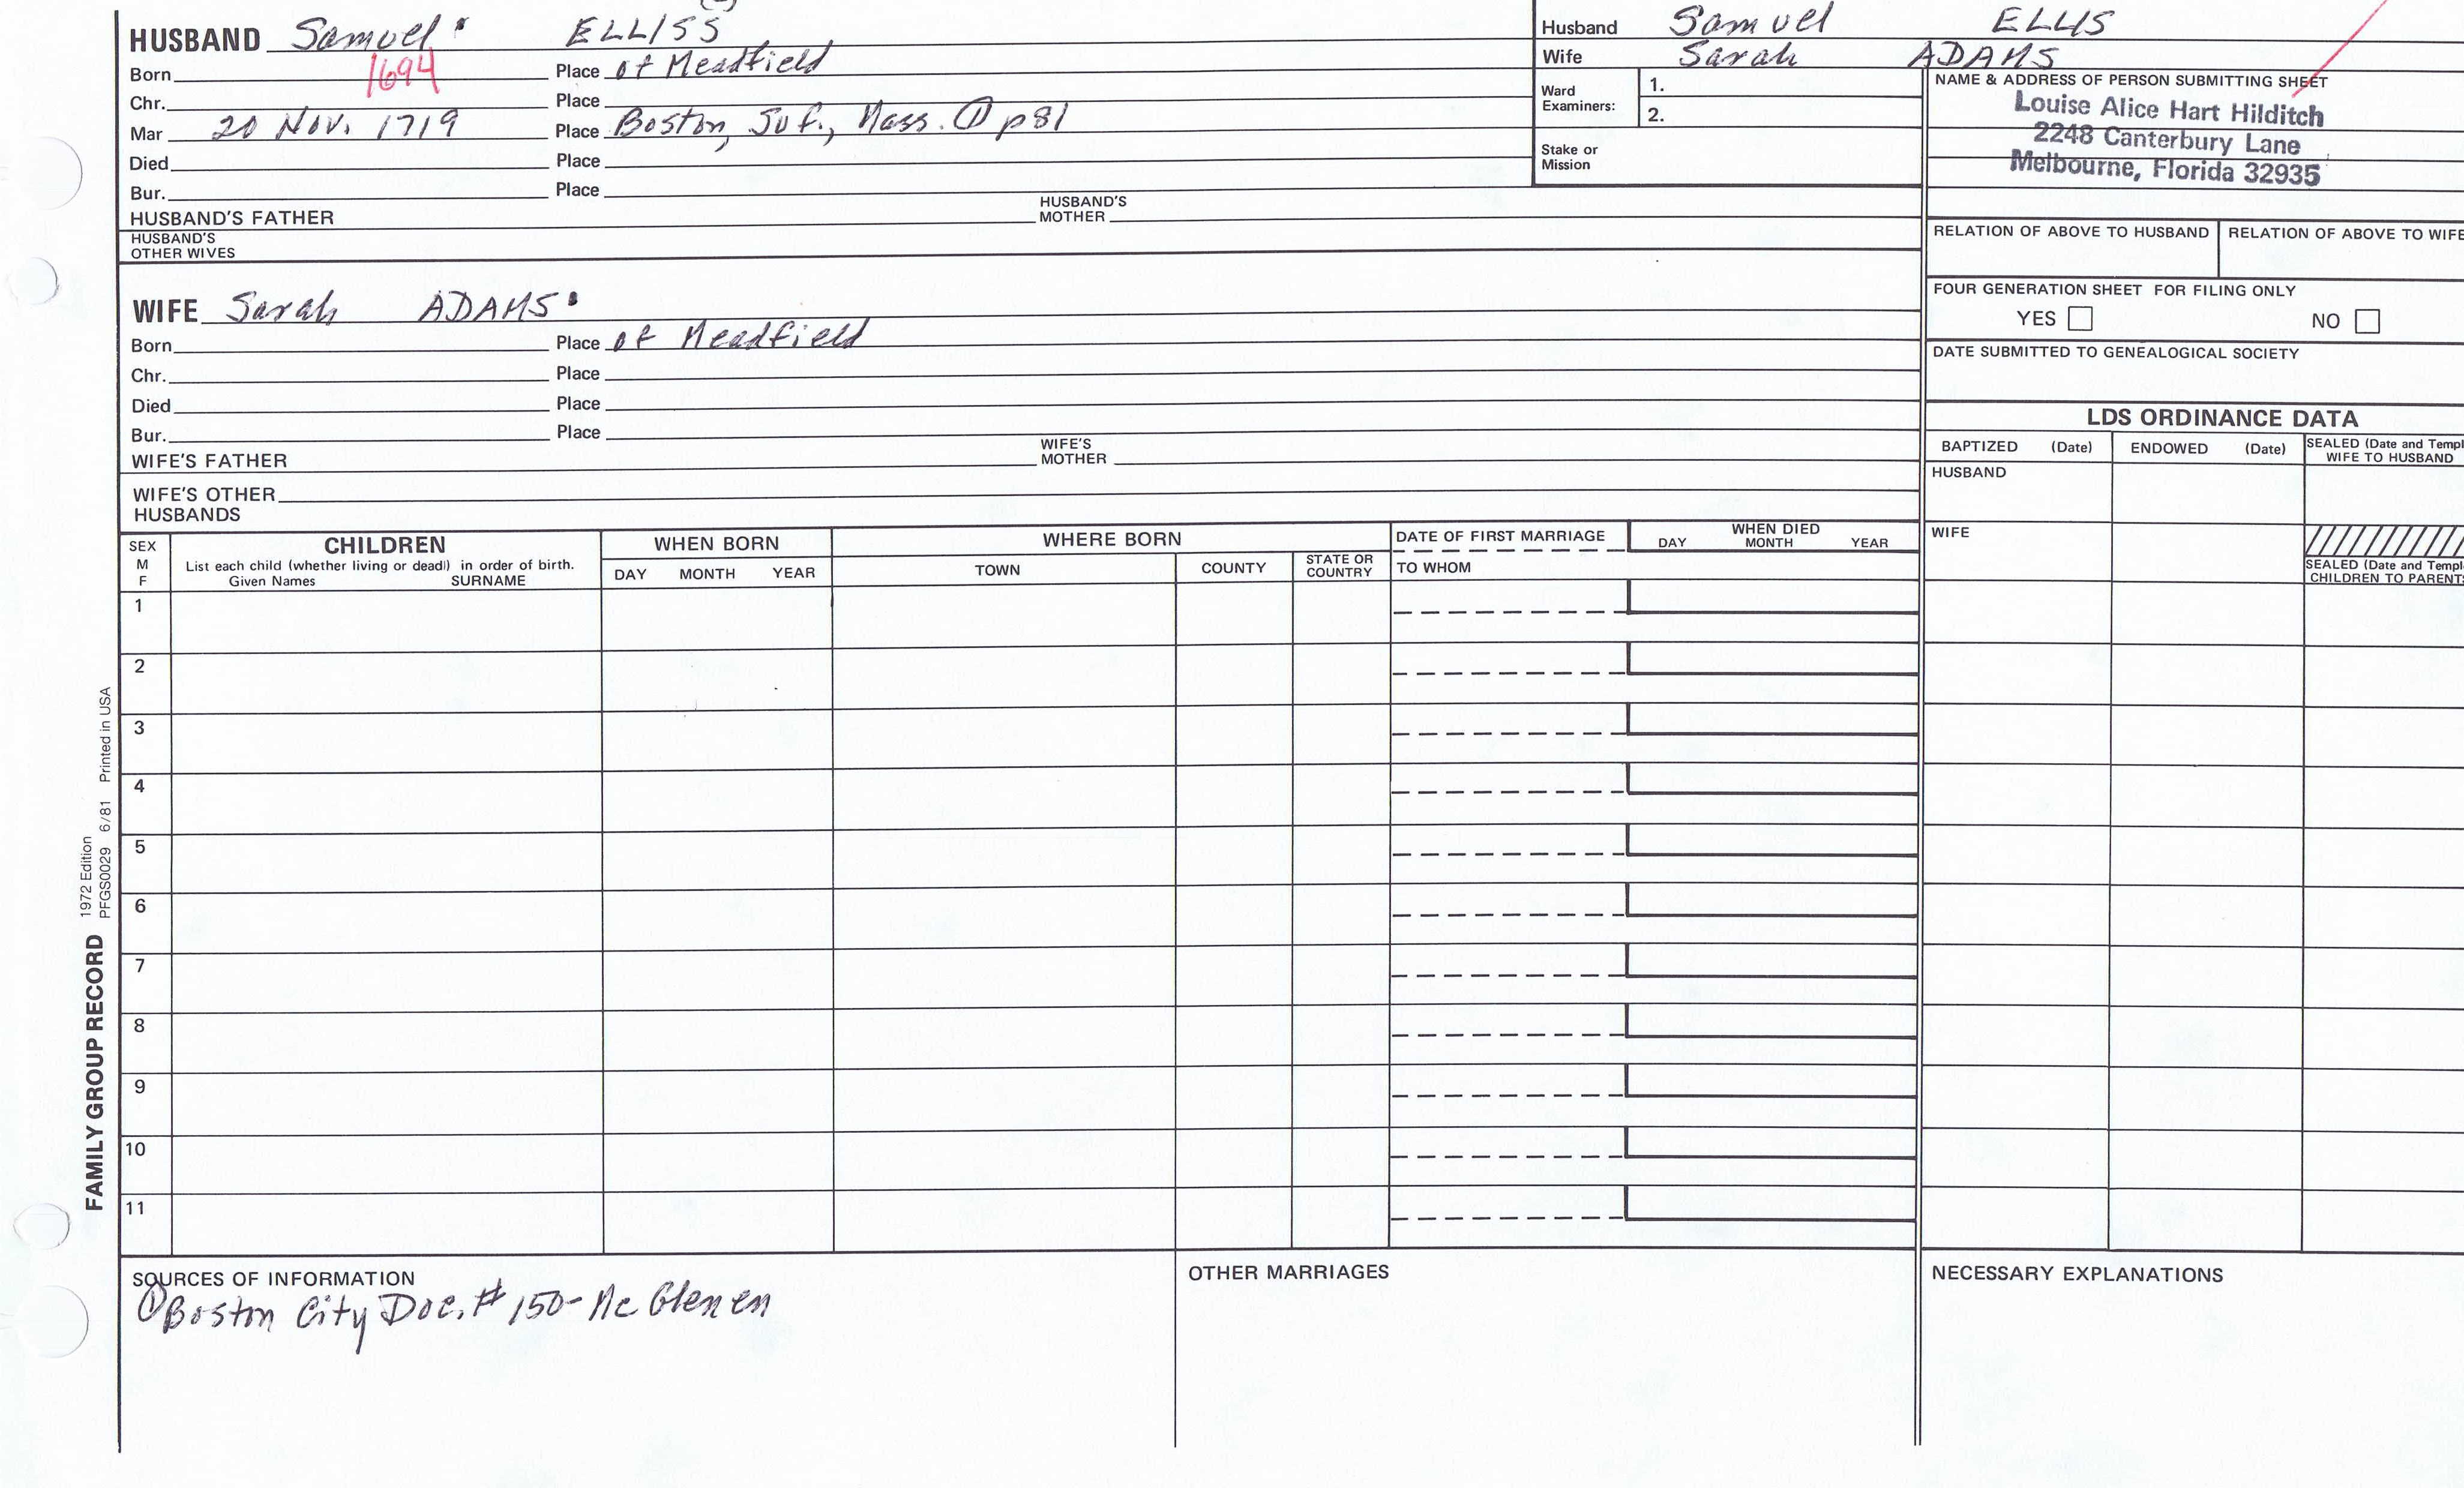 HUSBAND Samuel ELLISS
Born 1694 Place of Meadfield
Chr. Place
Mar 20 Nov. 1719 Place Boston, Suf., Mass. ① p81
Died Place
Bur. Place
HUSBAND'S FATHER HUSBAND'S MOTHER
HUSBAND'S
OTHER WIVES
Husband Samuel ELLIS
Wife Sarah ADAMS
Ward
Examiners: 1.
2.
Stake or
Mission
NAME & ADDRESS OF PERSON SUBMITTING SHEET
Louise Alice Hart Hilditch
2248 Canterbury Lane
Melbourne, Florida 32935
RELATION OF ABOVE TO HUSBAND RELATION OF ABOVE TO WIFE
FOUR GENERATION SHEET FOR FILING ONLY
YES NO
DATE SUBMITTED TO GENEALOGICAL SOCIETY
WIFE Sarah ADAMS
Born Place of Meadfield
Chr. Place
Died Place
Bur. Place
WIFE'S FATHER WIFE'S MOTHER
WIFE'S OTHER
HUSBANDS
LDS ORDINANCE DATA
BAPTIZED (Date) ENDOWED (Date) SEALED (Date and Templ
WIFE TO HUSBAND
HUSBAND
WIFE
SEALED (Date and Templ
CHILDREN TO PARENTS
SEX
M
F
CHILDREN
List each child (whether living or dead) in order of birth.
Given Names SURNAME
WHEN BORN
DAY MONTH YEAR
WHERE BORN
TOWN COUNTY STATE OR COUNTRY
DATE OF FIRST MARRIAGE
TO WHOM
WHEN DIED
DAY MONTH YEAR
1
2
3
4
5
6
7
8
9
10
11
FAMILY GROUP RECORD
1972 Edition
PFGS0029 6/81 Printed in USA
SOURCES OF INFORMATION
① Boston City Doc. # 150 - Mc Glenen
OTHER MARRIAGES
NECESSARY EXPLANATIONS